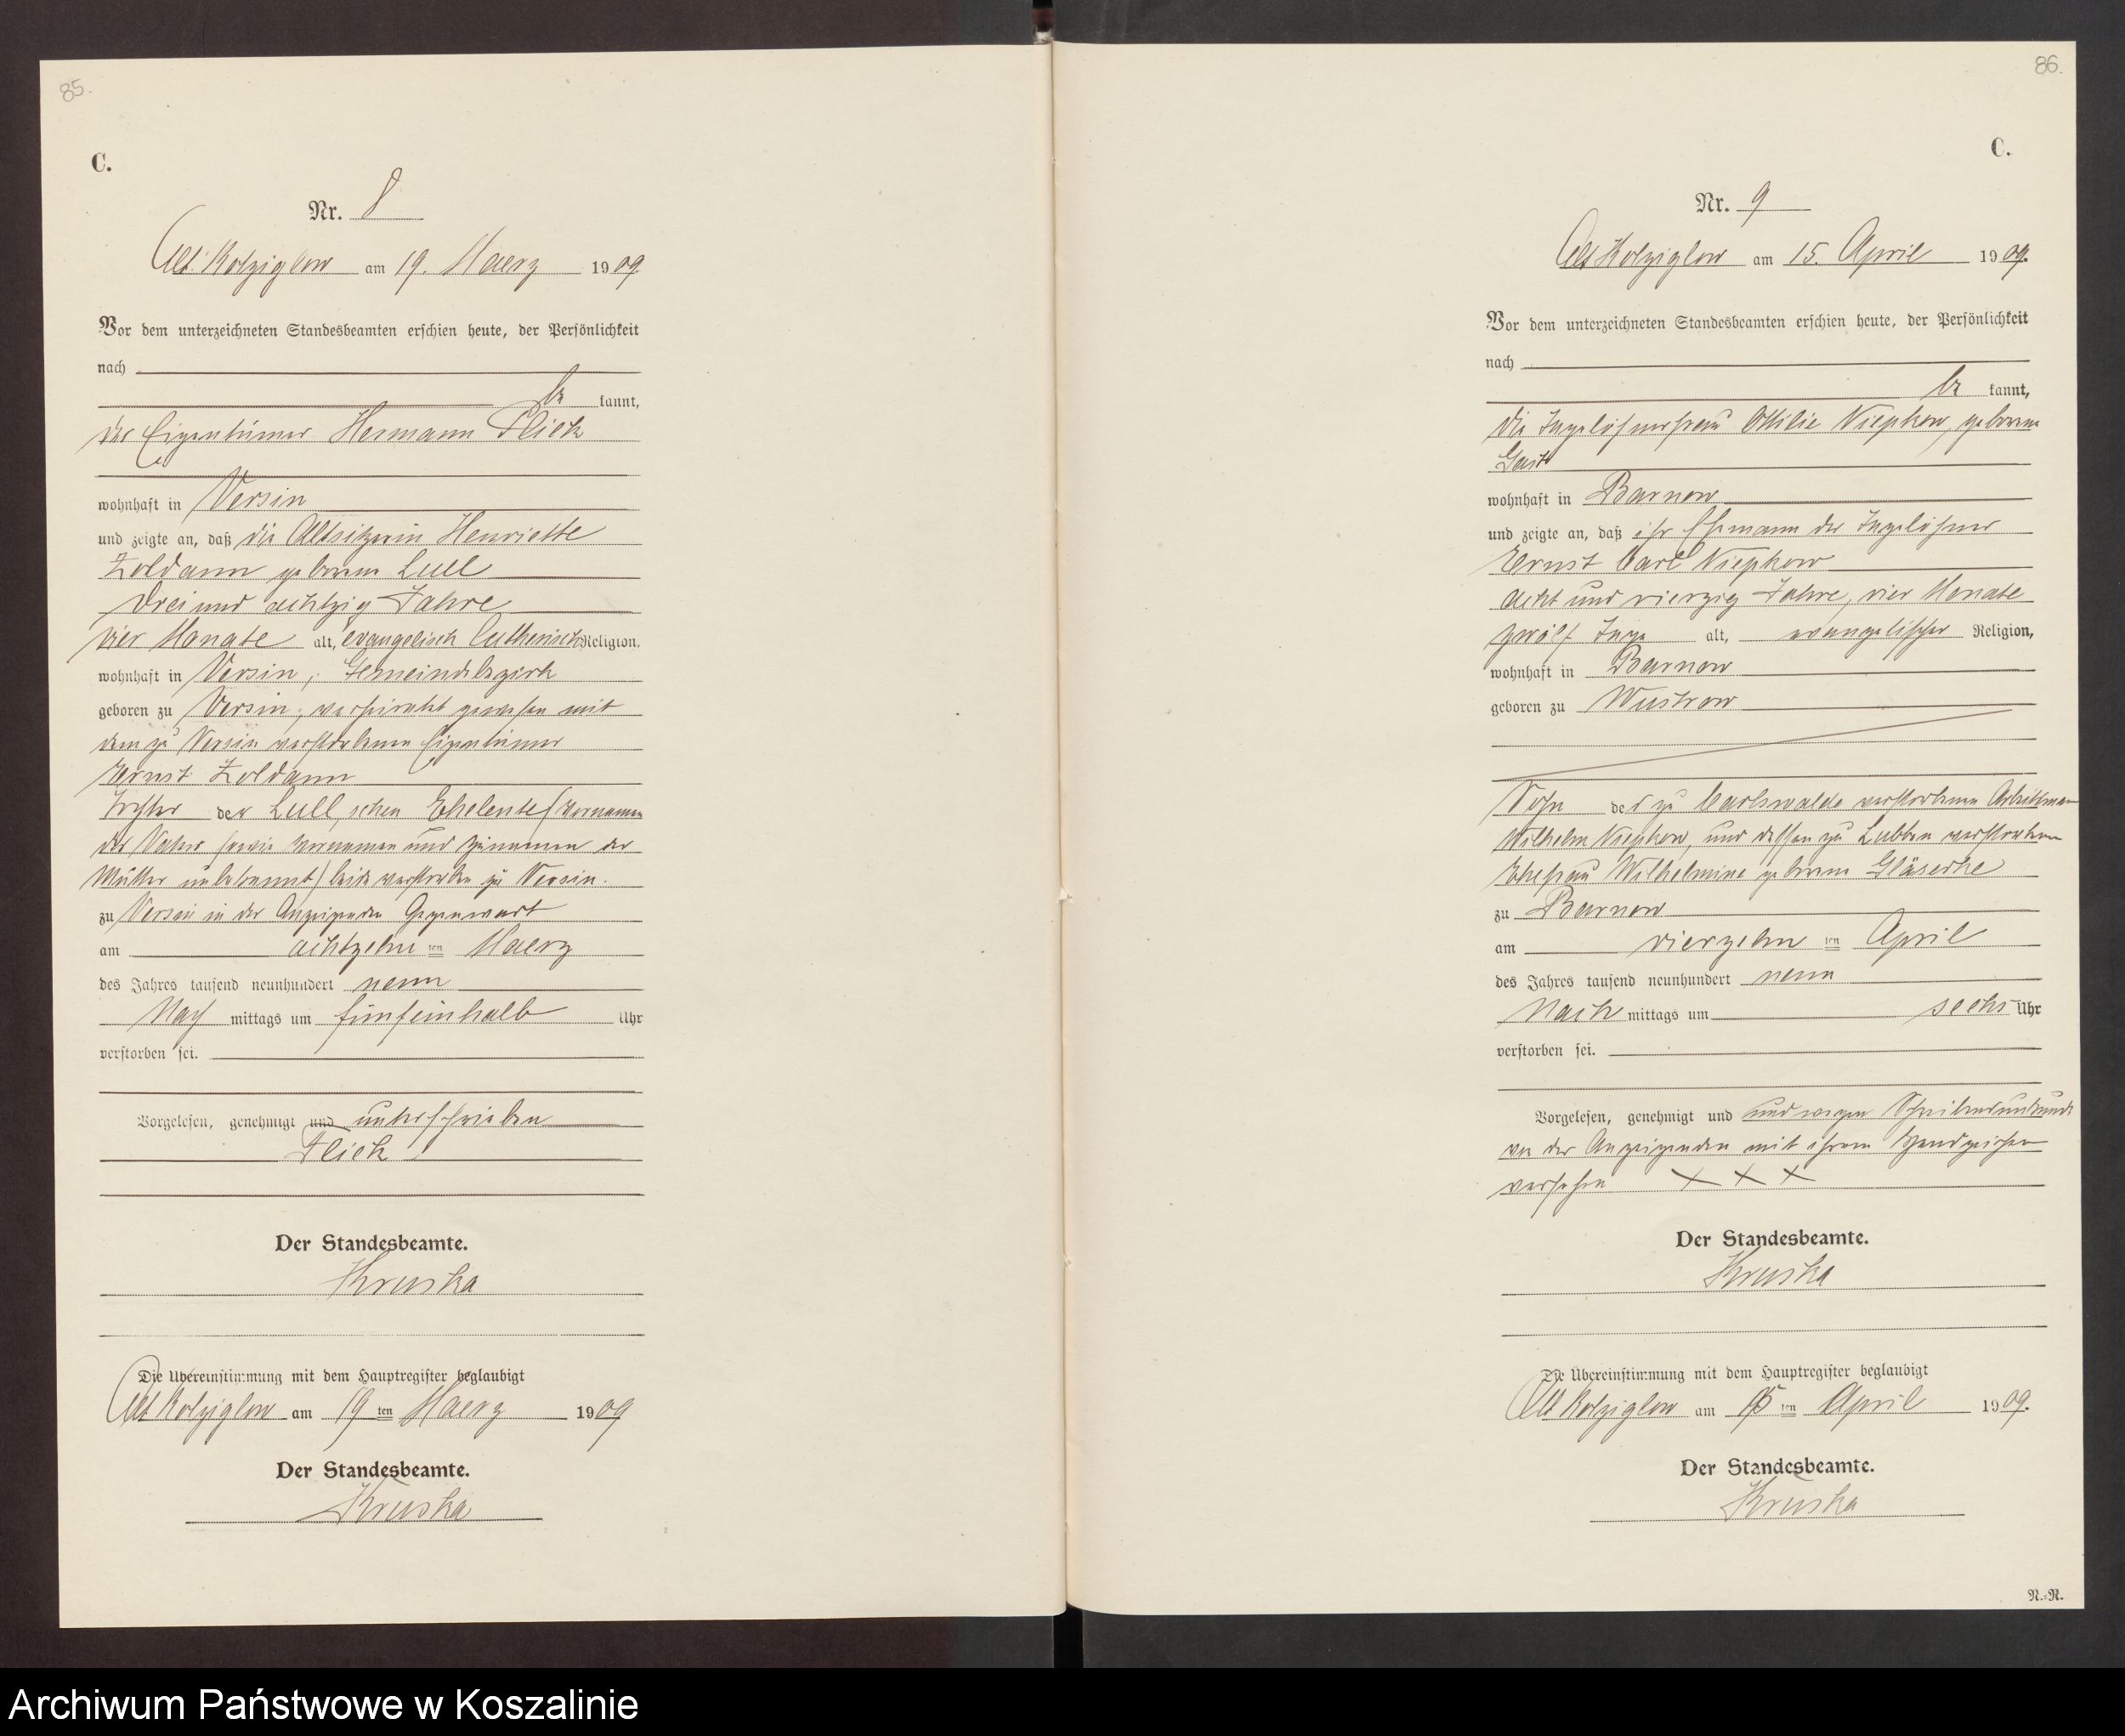 85.
C.
Nr. 8
Alt Kolziglow am 19. Maerz 1909.
Vor dem unterzeichneten Standesbeamten erschien heute, der Persönlichkeit
nach
be kannt,
der Eigentümer Hermann Flick
wohnhaft in Versin
und zeigte an, daß die Altsitzerin Henriette
Zoldann geborene Lull
drei und achtzig Jahre
vier Monate alt, evangelisch lutherisch Religion,
wohnhaft in Versin, Gemeindebezirk
geboren zu Versin, verheiratet gewesen mit
dem zu Versin verstorbenen Eigentümer
Ernst Zoldann
Tochter der Lull'schen Eheleute (Vornamen
des Vaters sowie Vornamen und Zunamen der
Mutter unbekannt) beide verstorben zu Versin.
zu Versin in des Anzeigenden Gegenwart
am achtzehn ten Maerz
des Jahres tausend neunhundert neun
Nach mittags um fünfeinhalb Uhr
verstorben sei.
Vorgelesen, genehmigt und unterschrieben
Flick
Der Standesbeamte.
Kruska
Die Übereinstimmung mit dem Hauptregister beglaubigt
Alt Kolziglow am 19 ten Maerz 1909
Der Standesbeamte.
Kruska
86.
C.
Nr. 9
Alt Kolziglow am 15. April 1909.
Vor dem unterzeichneten Standesbeamten erschien heute, der Persönlichkeit
nach
be kannt,
die Tagelöhnerfrau Ottilie Niepkow, geborene
wohnhaft in Barnow
und zeigte an, daß ihr Ehemann der Tagelöhner
Ernst Carl Niepkow
acht und vierzig Jahre, vier Monate
zwölf Tage alt, evangelischer Religion,
wohnhaft in Barnow
geboren zu Wustrow
Sohn des zu Carlswalde verstorbenen Arbeitsmann
Wilhelm Niepkow, und dessen zu Lubben verstorbenen
Ehefrau Wilhelmine geborene Gläserke
zu Barnow
am vierzehn ten April
des Jahres tausend neunhundert neun
Nach mittags um sechs Uhr
verstorben sei.
Vorgelesen, genehmigt und und wegen Schreibensunkunde
von der Anzeigenden mit ihrem Handzeichen
versehen X X X
Der Standesbeamte.
Kruska
Die Übereinstimmung mit dem Hauptregister beglaubigt
Alt Kolziglow am 15 ten April 1909.
Der Standesbeamte.
Kruska
N.-N.
Archiwum Państwowe w Koszalinie